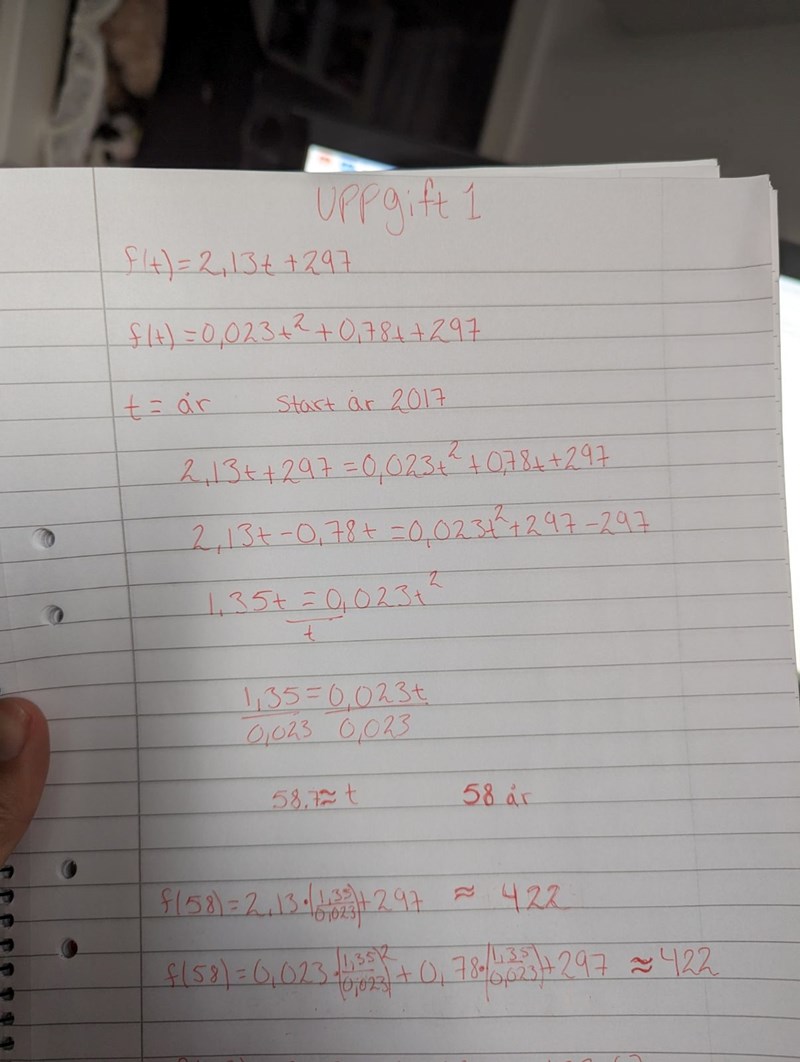 Uppgift 1
f(t)=2,13t+297
f(t)=0,023t²+0,78t+297
t = år Start år 2017
2,13t+297=0,023t²+0,78t+297
2,13t-0,78t=0,023t²+297-297
1,35t=0,023t²
t
1,35=0,023t
0,023 0,023
58.7≈t 58 år
f(58)=2,13·(1,35/0,023)+297 ≈ 422
f(58)=0,023·(1,35/0,023)²+0,78·(1,35/0,023)+297 ≈422